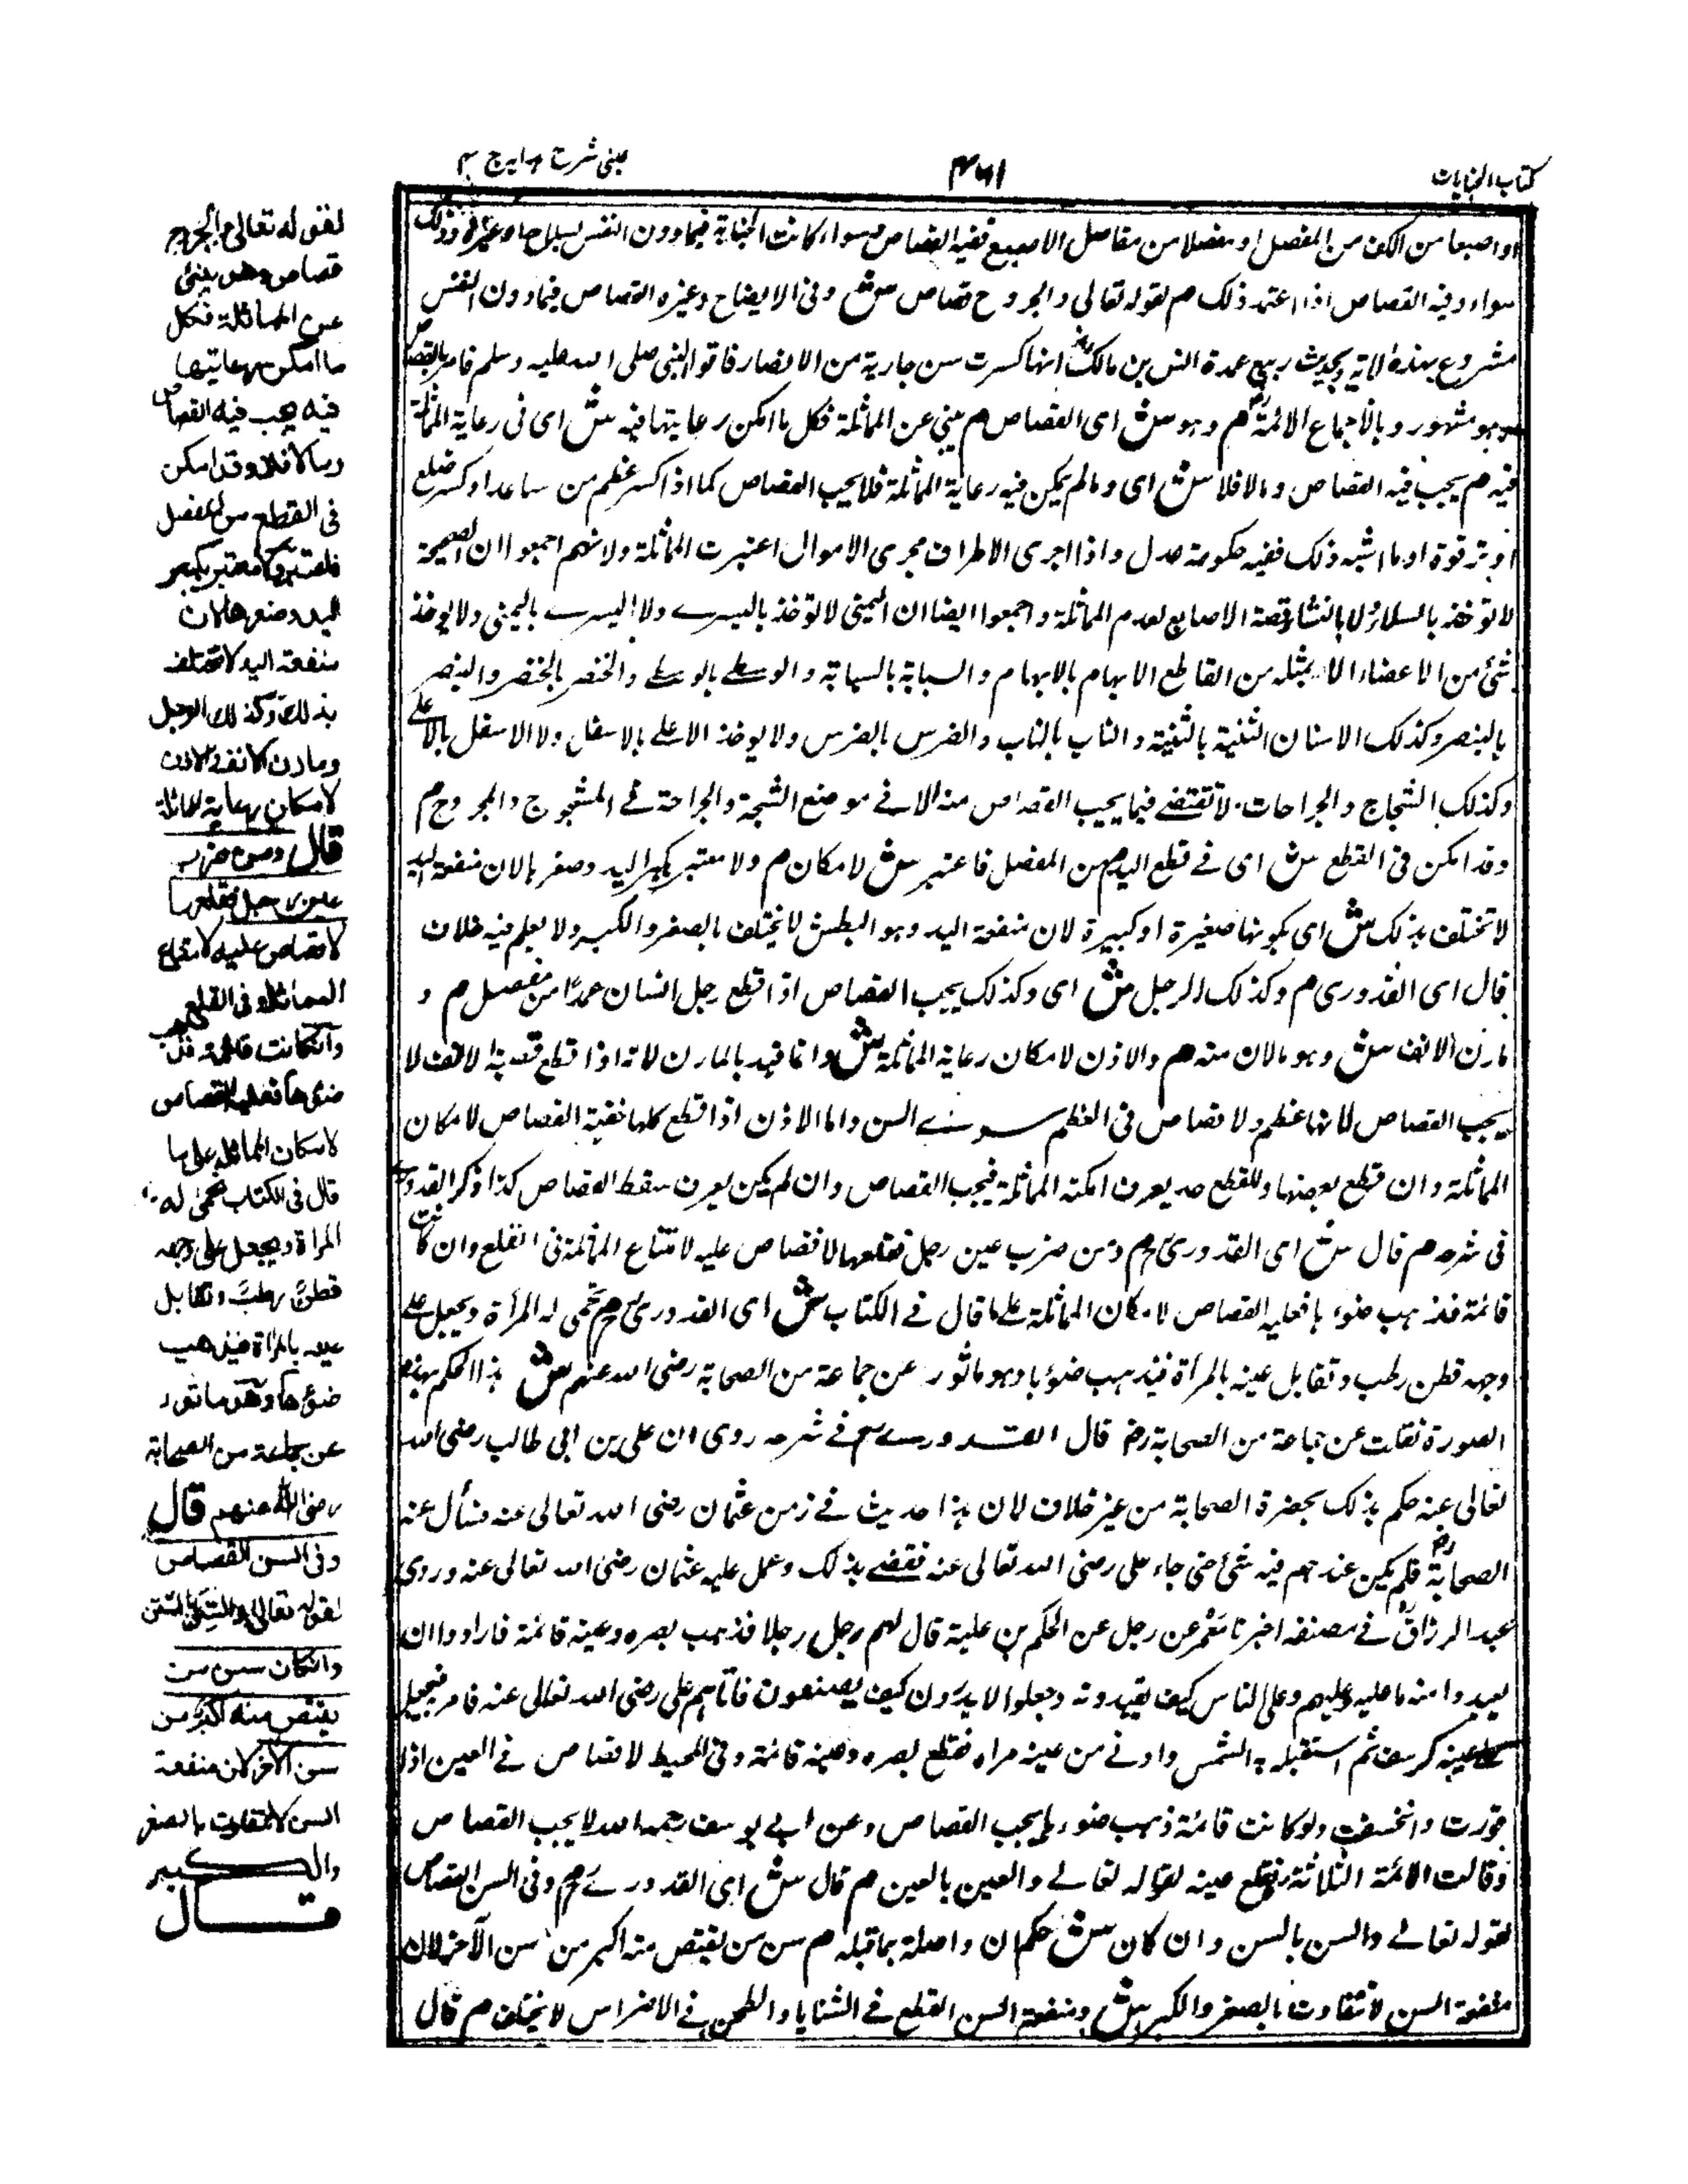 كتاب الجنايات
٤٦١
عينى شرح هدايه ج ٤
او اصبعا من الكف من المفصل او مفصلا من مفاصل الاصبع ففيه القصاص م سواء كانت الجناية فيما دون النفس بسلاح او غيره فذلك
سواء وفيه القصاص اذا اعتمد ذلك م لقوله تعالى والجروح قصاص ش وفى الايضاح وغيره القصاص فيما دون النفس
مشروع بهذه الاية وبحديث ربيع عمة انس بن مالك رض انها كسرت سن جارية من الانصار فاتوا النبى صلى الله عليه وسلم فامر بالقصاص
وهو مشهور وبالاجماع الائمة م وهو ش اى القصاص م ينبئ عن المماثلة فكل ما امكن رعايتها فيه ش اى فى رعاية المماثلة
فيه م يجب فيه القصاص وما لا فلا ش اى وما لم يكن فيه رعاية المماثلة فلا يجب القصاص كما اذا كسر عظم من ساعد او كسر ضلع
او ترقوة او ما اشبه ذلك ففيه حكومة عدل واذا اجرى الاطراف مجرى الاموال اعتبرت المماثلة ولانهم اجمعوا ان الصحيحة
لا توخذ بالشلاء ولا بالناقصة الاصابع لعدم المماثلة واجمعوا ايضا ان اليمنى لا توخذ باليسرے ولا اليسرے باليمنى ولا يوخذ
شئ من الاعضاء الا بمثله من القاطع الابهام بالابهام والسبابة بالسبابة والوسطے بالوسطے والخنصر بالخنصر والبنصر
بالبنصر وكذلك الاسنان الثنية بالثنية والناب بالناب والضرس بالضرس ولا يوخذ الاعلے بالاسفل ولا الاسفل بالاعلے
وكذلك الشجاج والجراحات لا تقتضے فيما يجب القصاص منه الا فے موضع الشجة والجراحة فے المشجوج والمجروح م
وقد امكن فى القطع ش اى فے قطع اليد م من المفصل فاعتبر ش لامكان م ولا معتبر بكبر اليد وصغرها لان منفعة اليد
لا تختلف بذلك ش اى بكونها صغيرة او كبيرة لان منفعة اليد وهو البطش لا يختلف بالصغر والكبر ولا يعلم فيه خلاف
قال اى القدورى م وكذلك الرجل ش اى وكذلك يجب القصاص اذا قطع رجل انسان عمدا من مفصل م و
مارن الانف ش وهو مالان منه م والاذن لامكان رعاية المماثلة ش وانما قيد بالمارن لانه اذا قطع قصبة الانف لا
يجب القصاص لانها عظم ولا قصاص فى العظم سوے السن واما الاذن اذا قطع كلها ففيه القصاص لامكان
المماثلة وان قطع بعضها وللقطع حد يعرف امكنه المماثلة فيجب القصاص وان لم يكن يعرف سقط القصاص كذا ذكر القدورے
فى شرحه م قال ش اى القدورى م ومن ضرب عين رجل فقلعها لا قصاص عليه لامتناع المماثلة فى القلع وان كانت
قائمة فذهب ضوءها فعليه القصاص لامكان المماثلة علے ما قال فے الكتاب ش اى القدورى م تحمى له المرأة ويجعل علے
وجهه قطن رطب وتقابل عينه بالمرأة فيذهب ضوءها وهو ماثور عن جماعة من الصحابة رضى الله عنهم ش هذا الحكم بهذه
الصورة نقلت عن جماعة من الصحابة رض قال القدورے فے شرحه روى ان على بن ابى طالب رضى الله
تعالى عنه حكم بذلك بحضرة الصحابة من غير خلاف لان هذا حديث فے زمن عثمان رضى الله تعالى عنه فسأل عنه
الصحابة رض فلم يكن عندهم فيه شئ حتى جاء على رضى الله تعالى عنه فقضے بذلك وعمل عليه عثمان رضى الله تعالى عنه وروى
عبد الرزاق فے مصنفه اخبرنا معمر عن رجل عن الحكم بن عليبة قال لهم رجل رجلا فذهب بصره وعينه قائمة فارادوا ان
يقيدوا منه ما عليه وعليهم وعلى الناس كيف يقيدونه وجعلوا لا يدرون كيف يصنعون فاتاهم على رضى الله تعالى عنه فامر فيجعل
علے عينه كرسف ثم استقبله به الشمس وادنے من عينه مراه فقلع بصره وعينه قائمة وفى المحيط لا قصاص فے العين اذا
قورت وانخسفت ولو كانت قائمة ذهب ضوءها يجب القصاص وعن ابے يوسف رحمه الله لا يجب القصاص
وقالت الائمة الثلاثة يقلع عينه لقوله تعالے والعين بالعين م قال ش اى القدورے م وفى السن القصاص
لقوله تعالے والسن بالسن وان كان ش حكم ان واصلة بما قبله م سن من يقتص منه اكبر من سن الآخر لان
منفعة السن لا تتفاوت بالصغر والكبر ش ومنفعة السن القطع فے الثنايا والطحن فے الاضراس لا يختلف م قال
لقوله تعالى والجروح
قصاص وهو ينبئ
عن المماثلة فكل
ما امكن رعايتها
فيه يجب فيه القصاص
وما لا فلا وقد امكن
فى القطع من المفصل
فاعتبر ولا معتبر بكبر
اليد وصغرها لان
منفعة اليد لا تختلف
بذلك وكذلك الرجل
ومارن الانف والاذن
لامكان رعاية المماثلة
قال ومن ضرب
عين رجل فقلعها
لا قصاص عليه لامتناع
المماثلة فى القلع
وان كانت قائمة فذهب
ضوءها فعليه القصاص
لامكان المماثلة على ما
قال فى الكتاب تحمى له
المرأة ويجعل على وجهه
قطن رطب وتقابل
عينه بالمرأة فيذهب
ضوءها وهو ماثور
عن جماعة من الصحابة
رضى الله عنهم قال
وفى السن القصاص
لقوله تعالى والسن بالسن
وان كان سن من
يقتص منه اكبر من
سن الآخر لان منفعة
السن لا تتفاوت بالصغر
والكبير
قال